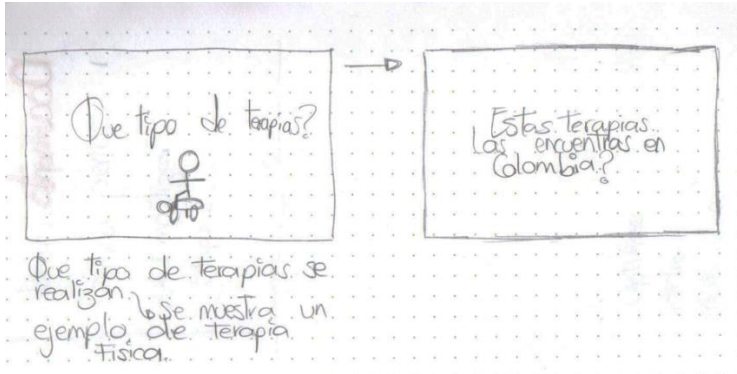 Que tipo de terapias?
Estas terapias
las encuentras en
Colombia?
Que tipo de terapias se
realizan. ↳ se muestra un
ejemplo de terapia
Física.